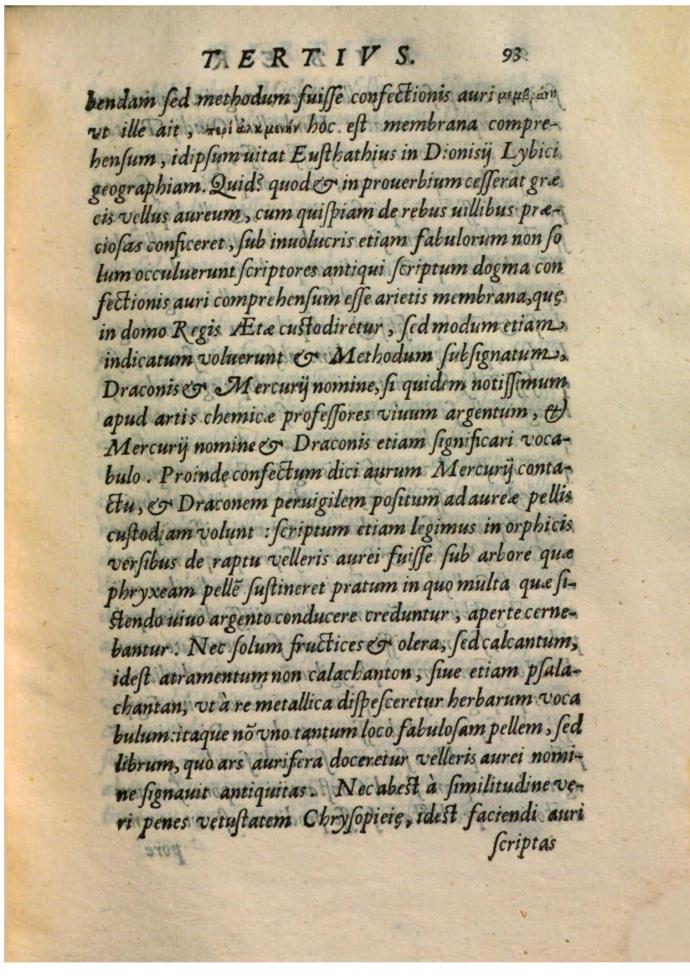 TERTIVS. 93
bendam sed methodum fuisse confectionis auri μεμβράνη
vt ille ait, hoc est membrana compre-
hensum, idipsum uitat Eusthathius in Dionisij Lybici
geographiam. Quid? quod & in proverbium cesserat græ
cis vellus aureum, cum quispiam de rebus uillibus præ-
ciosas conficeret, sub inuolucris etiam fabulorum non so
lum occuluerunt scriptores antiqui scriptum dogma con
fectionis auri comprehensum esse arietis membrana, quę
in domo Regis Ætæ custodiretur, sed modum etiam
indicatum voluerunt & Methodum subsignatum,
Draconis & Mercurij nomine, si quidem notissimum
apud artis chemicæ professores viuum argentum, &
Mercurij nomine & Draconis etiam significari voca-
bulo. Proinde confectum dici aurum Mercurij conta-
ctu, & Draconem peruigilem positum ad aureæ pellis
custodiam volunt: scriptum etiam legimus in orphicis
versibus de raptu velleris aurei fuisse sub arbore quæ
phryxeam pellē sustineret pratum in quo multa quæ si-
stendo uiuo argento conducere creduntur, aperte cerne-
bantur. Nec solum fructices & olera, sed calcantum,
idest atramentum non calachanton, siue etiam psala-
chantan, vt à re metallica dispesceretur herbarum voca
bulum: itaque nō vno tantum loco fabulosam pellem, sed
librum, quo ars aurifera doceretur velleris aurei nomi-
ne signauit antiquitas. Nec abest à similitudine ve-
ri penes vetustatem Chrysopieię, idest faciendi auri
scriptas